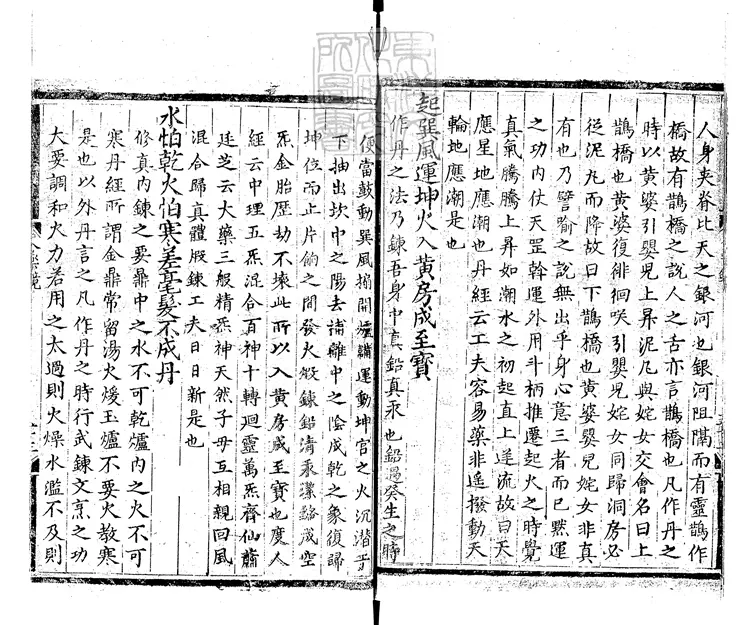 人身夾脊比天之銀河也銀河阻隔而有靈鵲作
橋故有鵲橋之說人之舌亦言鵲橋也凡作丹之
時以黃婆引嬰兒上昇泥丸與姹女交會名曰上
鵲橋也黃婆復徘徊咲引嬰兒姹女同歸洞房必
從泥丸而降故曰下鵲橋也黃婆嬰兒姹女非真
有也乃譬喻之說無出乎身心意三者而已默運
之功內仗天罡斡運外用斗柄推遷起火之時覺
真氣騰騰上昇如潮水之初起直上逆流故曰天
應星地應潮也丹經云工夫容易藥非遙撥動天
輪地應潮是也
起巽風運坤火入黃房成至寶
作丹之法乃鍊吾身中真鉛真汞也鉛遇癸生之時
便當鼓動巽風搧開爐鞴運動坤宮之火沉潛于
下抽出坎中之陽去補離中之陰成乾之象復歸
坤位而止片餉之間發火煅鍊鉛清汞潔結成空
炁金胎歷劫不壞此所以入黃房成至寶也度人
經云中理五炁混合百神十轉迴靈萬炁齊仙蕭
廷芝云大藥三般精炁神天然子母互相親回風
混合歸真體煅鍊工夫日日新是也
水怕乾火怕寒差毫髮不成丹
修真內鍊之要鼎中之水不可乾爐內之火不可
寒丹經所謂金鼎常留湯火煖玉爐不要火教寒
是也以外丹言之凡作丹之時行武鍊文烹之功
大要調和火力若用之太過則火燥水濫不及則